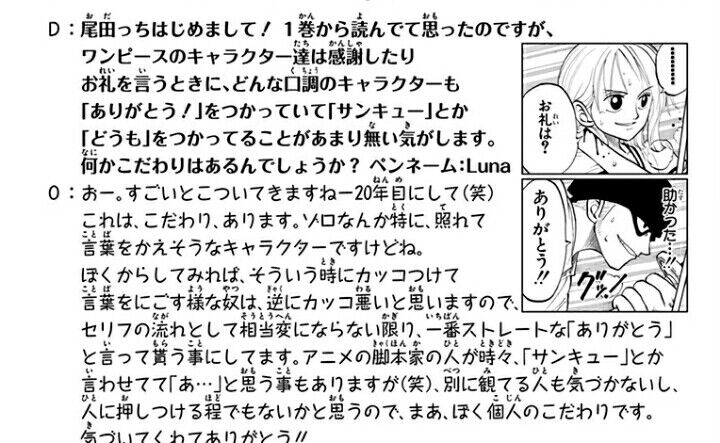 D：尾田っちはじめまして！ 1巻から読んでて思ったのですが、
ワンピースのキャラクター達は感謝したり
お礼を言うときに、どんな口調のキャラクターも
「ありがとう！」をつかっていて「サンキュー」とか
「どうも」をつかってることがあまり無い気がします。
何かこだわりはあるんでしょうか？ ペンネーム：Luna
O：おー。すごいとこついてきますねー20年目にして(笑)
これは、こだわり、あります。ゾロなんか特に、照れて
言葉をかえそうなキャラクターですけどね。
ぼくからしてみれば、そういう時にカッコつけて
言葉をにごす様な奴は、逆にカッコ悪いと思いますので、
セリフの流れとして相当変にならない限り、一番ストレートな「ありがとう」
と言って貰う事にしてます。アニメの脚本家の人が時々、「サンキュー」とか
言わせてて「あ…」と思う事もありますが(笑)、別に観てる人も気づかないし、
人に押しつける程でもないかと思うので、まあ、ぼく個人のこだわりです。
気づいてくれてありがとう!!
………
お礼は？
助かった…!!
ありがとう!!
グッ…!!